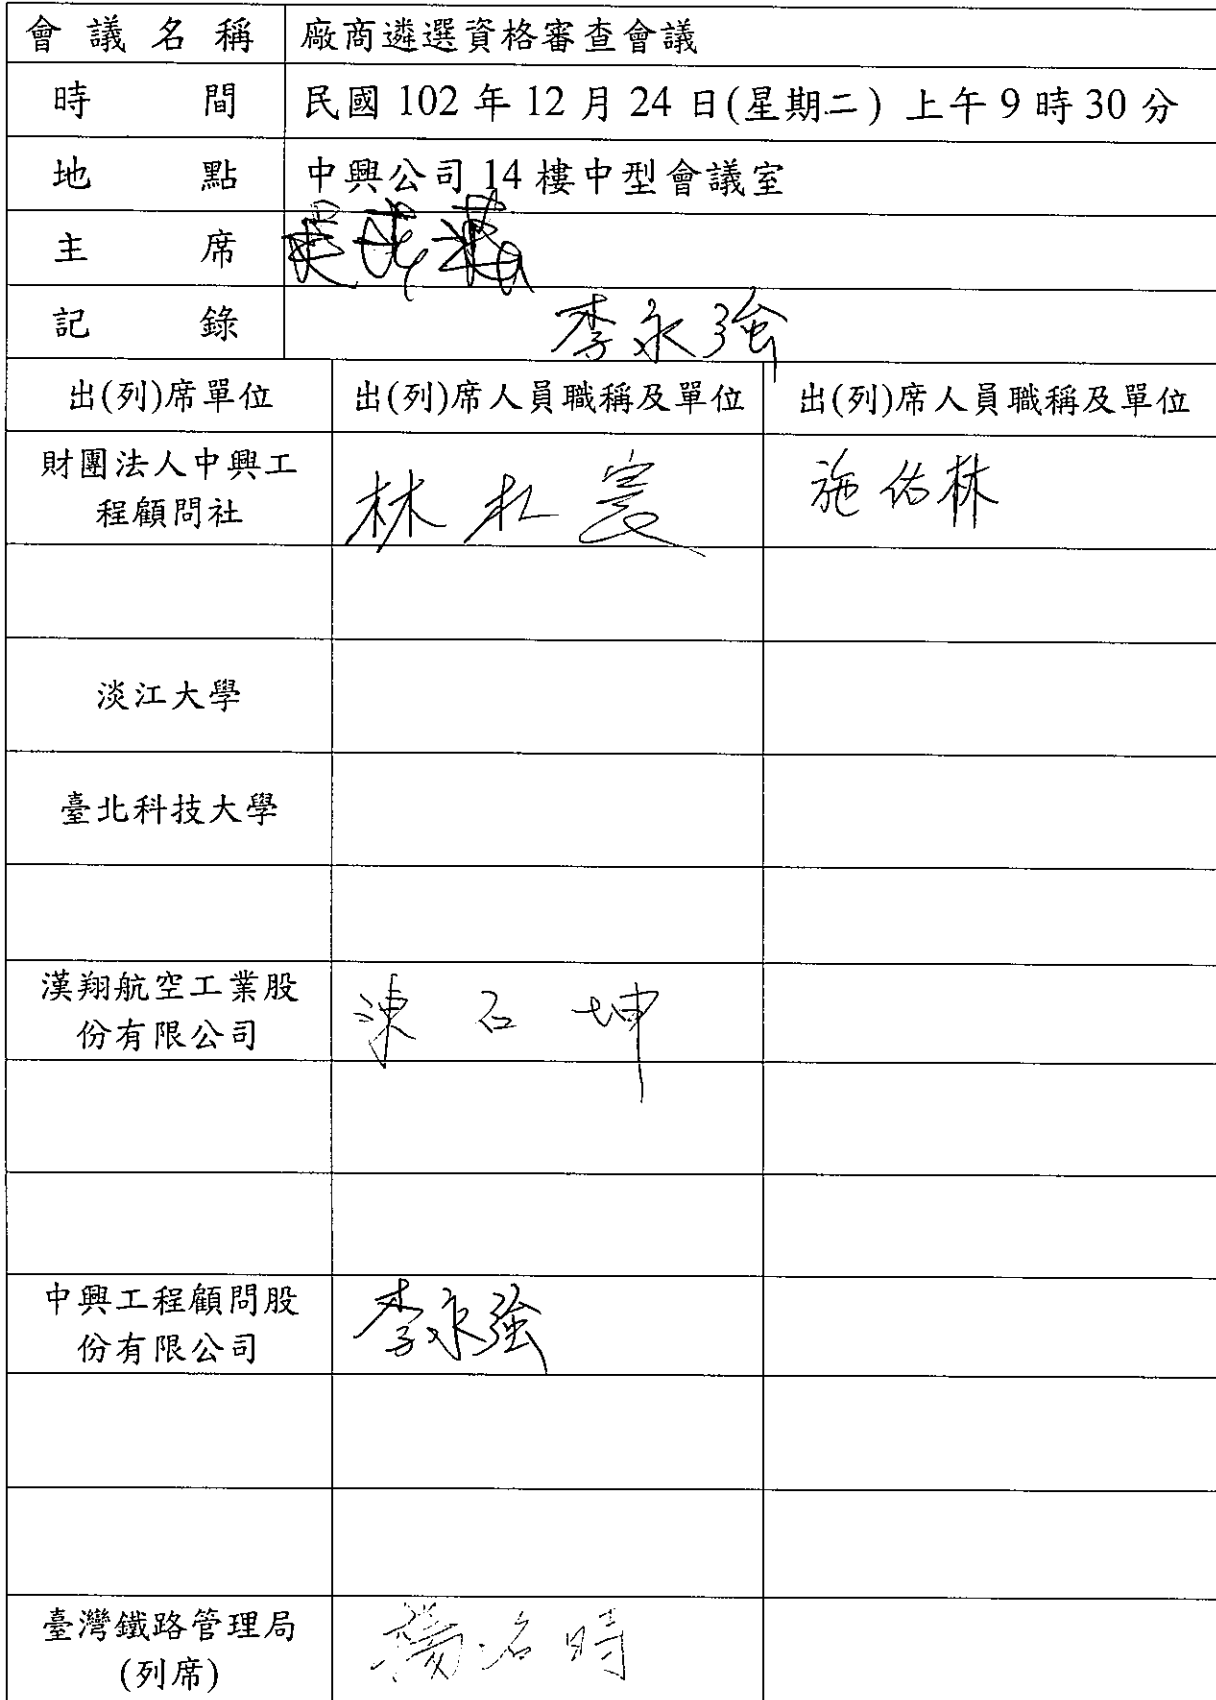 會議名稱 廠商遴選資格審查會議
時間 民國 102 年 12 月 24 日(星期二) 上午 9 時 30 分
地點 中興公司 14 樓中型會議室
主席
記錄 李永強
出(列)席單位 出(列)席人員職稱及單位 出(列)席人員職稱及單位
財團法人中興工
程顧問社 林 施佑林
淡江大學
臺北科技大學
漢翔航空工業股
份有限公司 陳石坤
中興工程顧問股
份有限公司 李永強
臺灣鐵路管理局
(列席) 楊名時